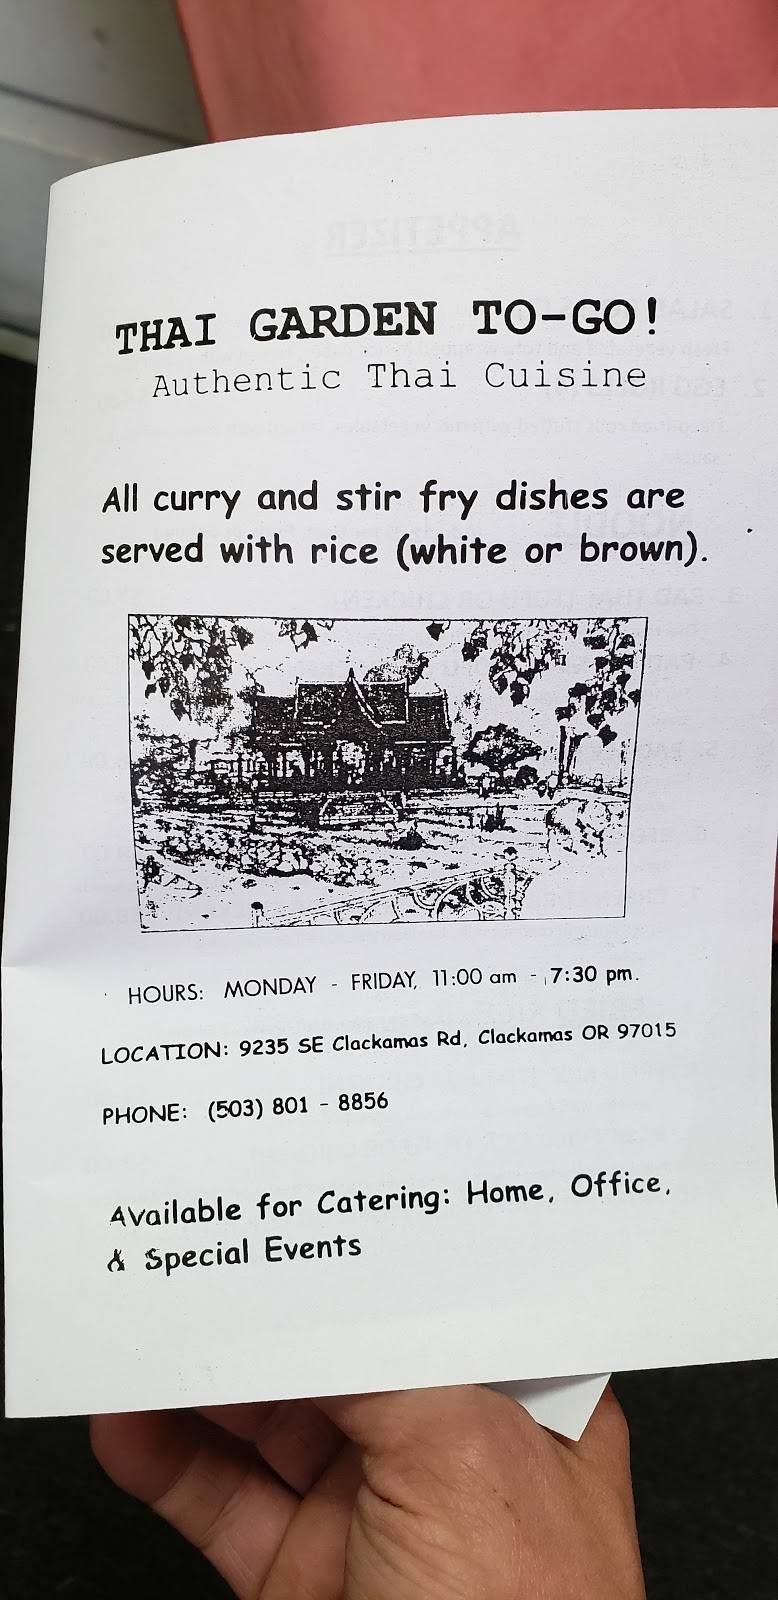 THAI GARDEN TO-GO!
Authentic Thai Cuisine
All curry and stir fry dishes are
served with rice (white or brown).
HOURS: MONDAY - FRIDAY, 11:00 am - 7:30 pm.
LOCATION: 9235 SE Clackamas Rd, Clackamas OR 97015
PHONE: (503) 801 - 8856
Available for Catering: Home, Office,
& Special Events
APPETIZER